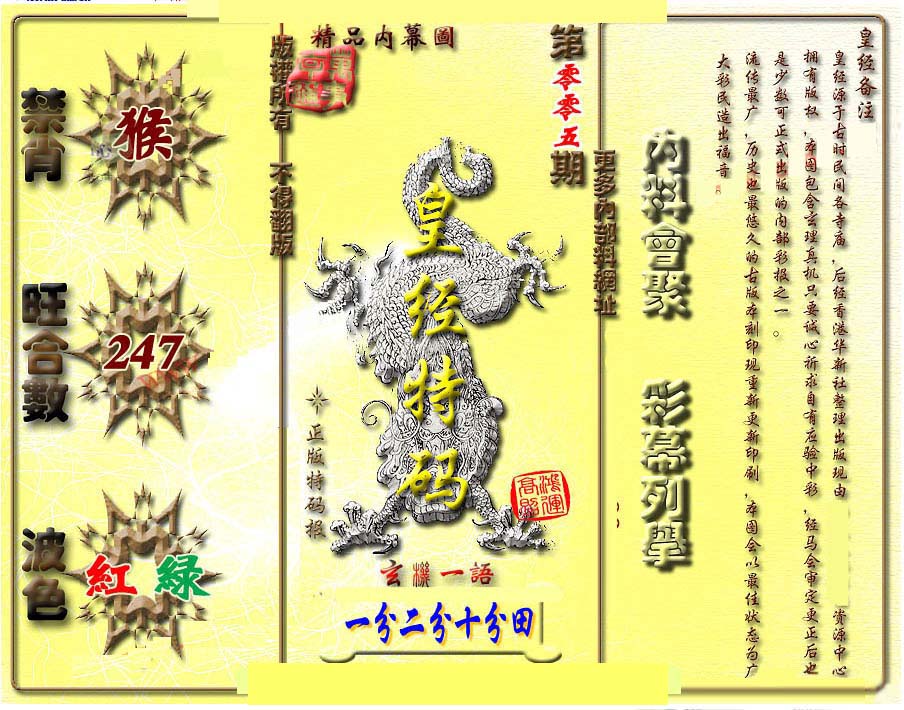 皇经备注
皇经源于古时民间各寺庙，后经香港华新社整理出版现由 资源中心
拥有版权，本图包含玄理真机只要诚心祈求自有应验中彩，经马会审定更正后也
是少数可正式出版的内部彩报之一。
流传最广，历史也最悠久的古版本刻印现重新更新印刷，本图会以最佳状态为广
大彩民造出福音
内料會聚
彩幕列舉
更多內部料網址
第零零五期
精品内幕圖
版權所有 不得翻版
皇经特码
正版特码报
鴻運高照
玄機一語
一分二分十分田
禁肖
猴
旺合數
247
波色
紅 綠